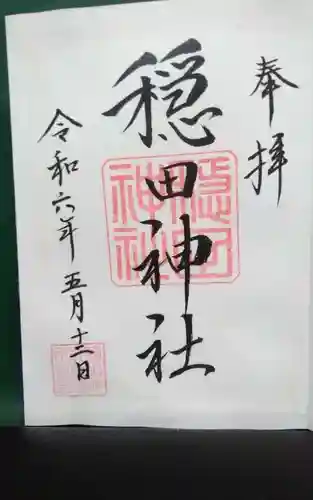 奉拝
穏田神社
穏田
神社
令和六年五月十二日